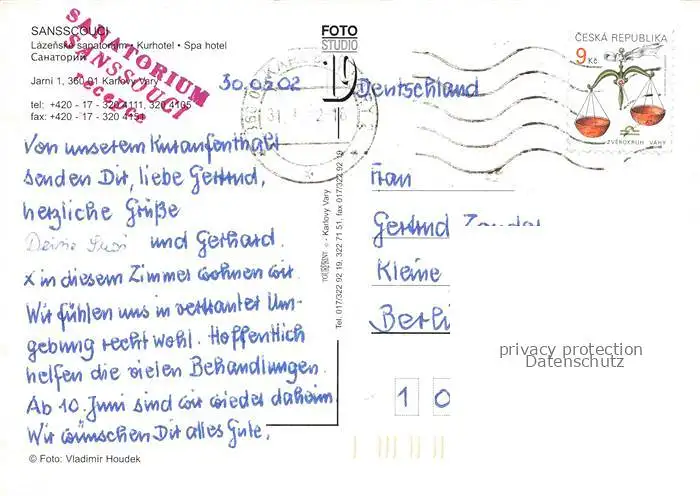 SANSSOUCI
Lázeňské sanatorium • Kurhotel • Spa hotel
Санаторий
Jarní 1, 360 01 Karlovy Vary
tel: +420 - 17 - 320 4111, 320 4105
fax: +420 - 17 - 320 4151
SANATORIUM
SANSSOUCI
recepce
FOTO
STUDIO
ČESKÁ REPUBLIKA
9 Kč
ZVĚROKRUH VÁHY
30.05.02
Deutschland
Von unserem Kuraufenthalt
senden Dir, liebe Gertrud,
herzliche Grüße
Deine Susi und Gerhard.
x in diesem Zimmer wohnen wir.
Wir fühlen uns in vertrauter Um-
gebung recht wohl. Hoffentlich
helfen die vielen Behandlungen.
Ab 10. Juni sind wir wieder daheim
Wir wünschen Dir alles Gute.
© Foto: Vladimír Houdek
Karlovy Vary
Tel. 017/322 92 19, 322 71 51, fax 017/322 92 19
Frau
Gertrud
Kleine
Berli
1 0
privacy protection
Datenschutz